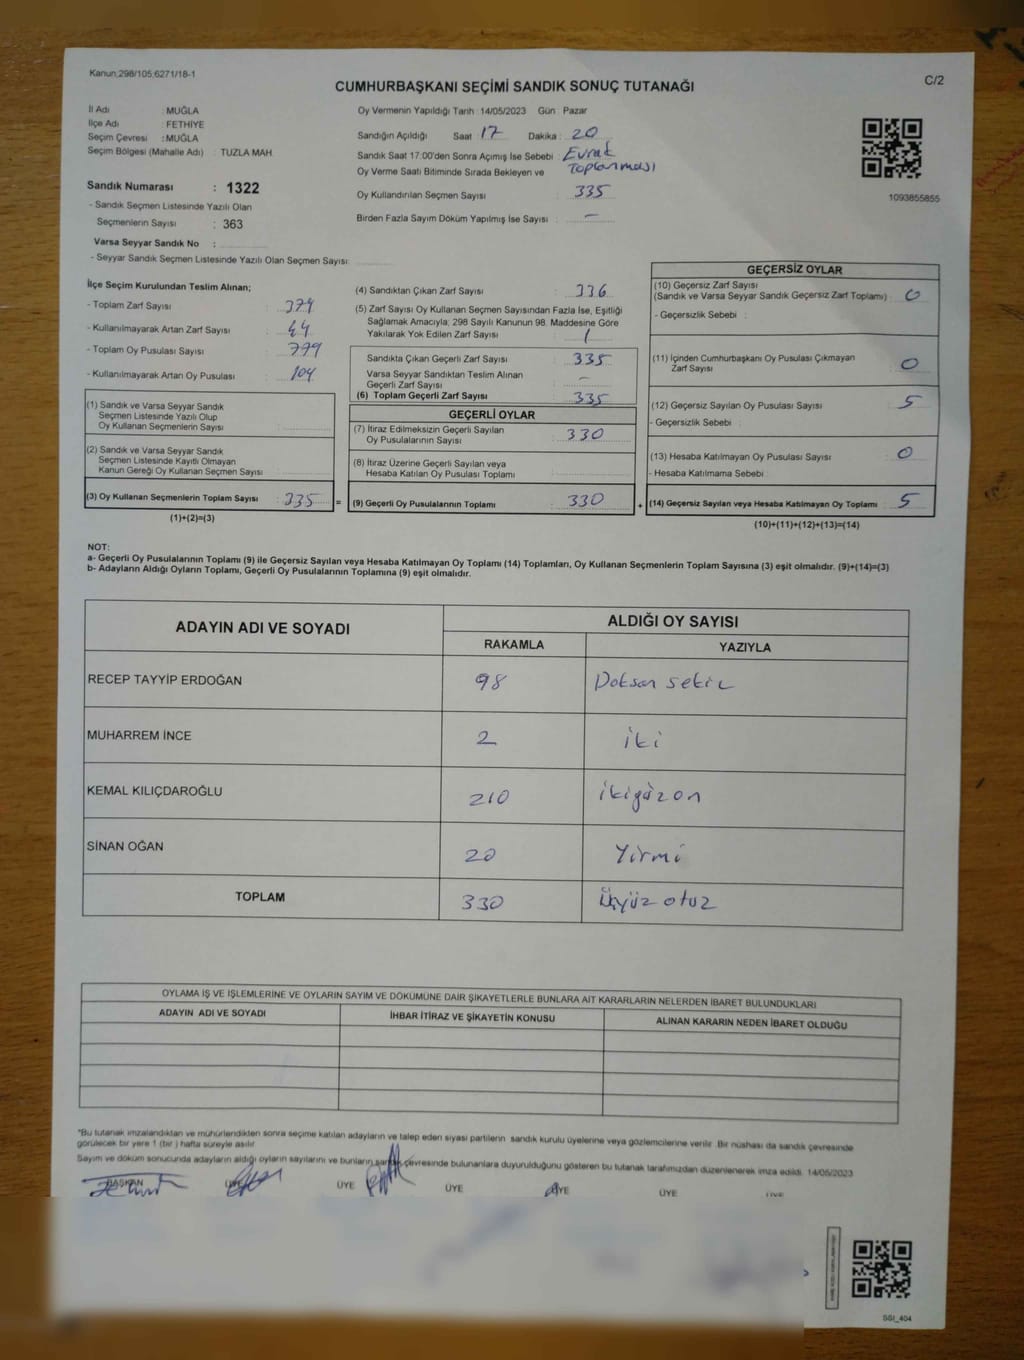 Kanun;298/105;6271/18-1
C/2
CUMHURBAŞKANI SEÇİMİ SANDIK SONUÇ TUTANAĞI
İl Adı : MUĞLA
İlçe Adı : FETHİYE
Seçim Çevresi : MUĞLA
Seçim Bölgesi (Mahalle Adı) : TUZLA MAH.
Sandık Numarası : 1322
- Sandık Seçmen Listesinde Yazılı Olan
Seçmenlerin Sayısı : 363
Varsa Seyyar Sandık No :
- Seyyar Sandık Seçmen Listesinde Yazılı Olan Seçmen Sayısı:
Oy Vermenin Yapıldığı Tarih : 14/05/2023 Gün : Pazar
Sandığın Açıldığı Saat : 17 Dakika : 20
Sandık Saat 17:00'den Sonra Açımış İse Sebebi : Evrak Toplanması
Oy Verme Saati Bitiminde Sırada Bekleyen ve
Oy Kullandırılan Seçmen Sayısı : 335
Birden Fazla Sayım Döküm Yapılmış İse Sayısı : -
1093855855
İlçe Seçim Kurulundan Teslim Alınan;
- Toplam Zarf Sayısı : 379
- Kullanılmayarak Artan Zarf Sayısı : 44
- Toplam Oy Pusulası Sayısı :
- Kullanılmayarak Artan Oy Pusulası : 104
(1) Sandık ve Varsa Seyyar Sandık
Seçmen Listesinde Yazılı Olup
Oy Kullanan Seçmenlerin Sayısı :
(2) Sandık ve Varsa Seyyar Sandık
Seçmen Listesinde Kayıtlı Olmayan
Kanun Gereği Oy Kullanan Seçmen Sayısı :
(3) Oy Kullanan Seçmenlerin Toplam Sayısı : 335 =
(1)+(2)=(3)
(4) Sandıktan Çıkan Zarf Sayısı : 336
(5) Zarf Sayısı Oy Kullanan Seçmen Sayısından Fazla İse, Eşitliği
Sağlamak Amacıyla; 298 Sayılı Kanunun 98. Maddesine Göre
Yakılarak Yok Edilen Zarf Sayısı : 1
Sandıkta Çıkan Geçerli Zarf Sayısı : 335
Varsa Seyyar Sandıktan Teslim Alınan
Geçerli Zarf Sayısı : -
(6) Toplam Geçerli Zarf Sayısı : 335
GEÇERLİ OYLAR
(7) İtiraz Edilmeksizin Geçerli Sayılan
Oy Pusulalarının Sayısı : 330
(8) İtiraz Üzerine Geçerli Sayılan veya
Hesaba Katılan Oy Pusulası Toplamı :
(9) Geçerli Oy Pusulalarının Toplamı : 330 +
GEÇERSİZ OYLAR
(10) Geçersiz Zarf Sayısı
(Sandık ve Varsa Seyyar Sandık Geçersiz Zarf Toplamı) : 0
- Geçersizlik Sebebi :
(11) İçinden Cumhurbaşkanı Oy Pusulası Çıkmayan
Zarf Sayısı : 0
(12) Geçersiz Sayılan Oy Pusulası Sayısı : 5
- Geçersizlik Sebebi :
(13) Hesaba Katılmayan Oy Pusulası Sayısı : 0
- Hesaba Katılmama Sebebi :
(14) Geçersiz Sayılan veya Hesaba Katılmayan Oy Toplamı : 5
(10)+(11)+(12)+(13)=(14)
NOT:
a- Geçerli Oy Pusulalarının Toplamı (9) ile Geçersiz Sayılan veya Hesaba Katılmayan Oy Toplamı (14) Toplamları, Oy Kullanan Seçmenlerin Toplam Sayısına (3) eşit olmalıdır. (9)+(14)=(3)
b- Adayların Aldığı Oyların Toplamı, Geçerli Oy Pusulalarının Toplamına (9) eşit olmalıdır.
ADAYIN ADI VE SOYADI
ALDIĞI OY SAYISI
RAKAMLA YAZIYLA
RECEP TAYYİP ERDOĞAN 98 Doksan sekiz
MUHARREM İNCE 2 iki
KEMAL KILIÇDAROĞLU 210 ikiyüzon
SİNAN OĞAN 20 Yirmi
TOPLAM 330 Üçyüz otuz
OYLAMA İŞ VE İŞLEMLERİNE VE OYLARIN SAYIM VE DÖKÜMÜNE DAİR ŞİKAYETLERLE BUNLARA AİT KARARLARIN NELERDEN İBARET BULUNDUKLARI
ADAYIN ADI VE SOYADI İHBAR İTİRAZ VE ŞİKAYETİN KONUSU ALINAN KARARIN NEDEN İBARET OLDUĞU
*Bu tutanak imzalandıktan ve mühürlendikten sonra seçime katılan adayların ve talep eden siyasi partilerin sandık kurulu üyelerine veya gözlemcilerine verilir. Bir nüshası da sandık çevresinde
görülecek bir yere 1 (bir ) hafta süreyle asılır.
Sayım ve döküm sonucunda adayların aldığı oyların sayılarını ve bunların sandık çevresinde bulunanlara duyurulduğunu gösteren bu tutanak tarafımızdan düzenlenerek imza edildi. 14/05/2023
BAŞKAN ÜYE ÜYE ÜYE ÜYE ÜYE
SSI_404